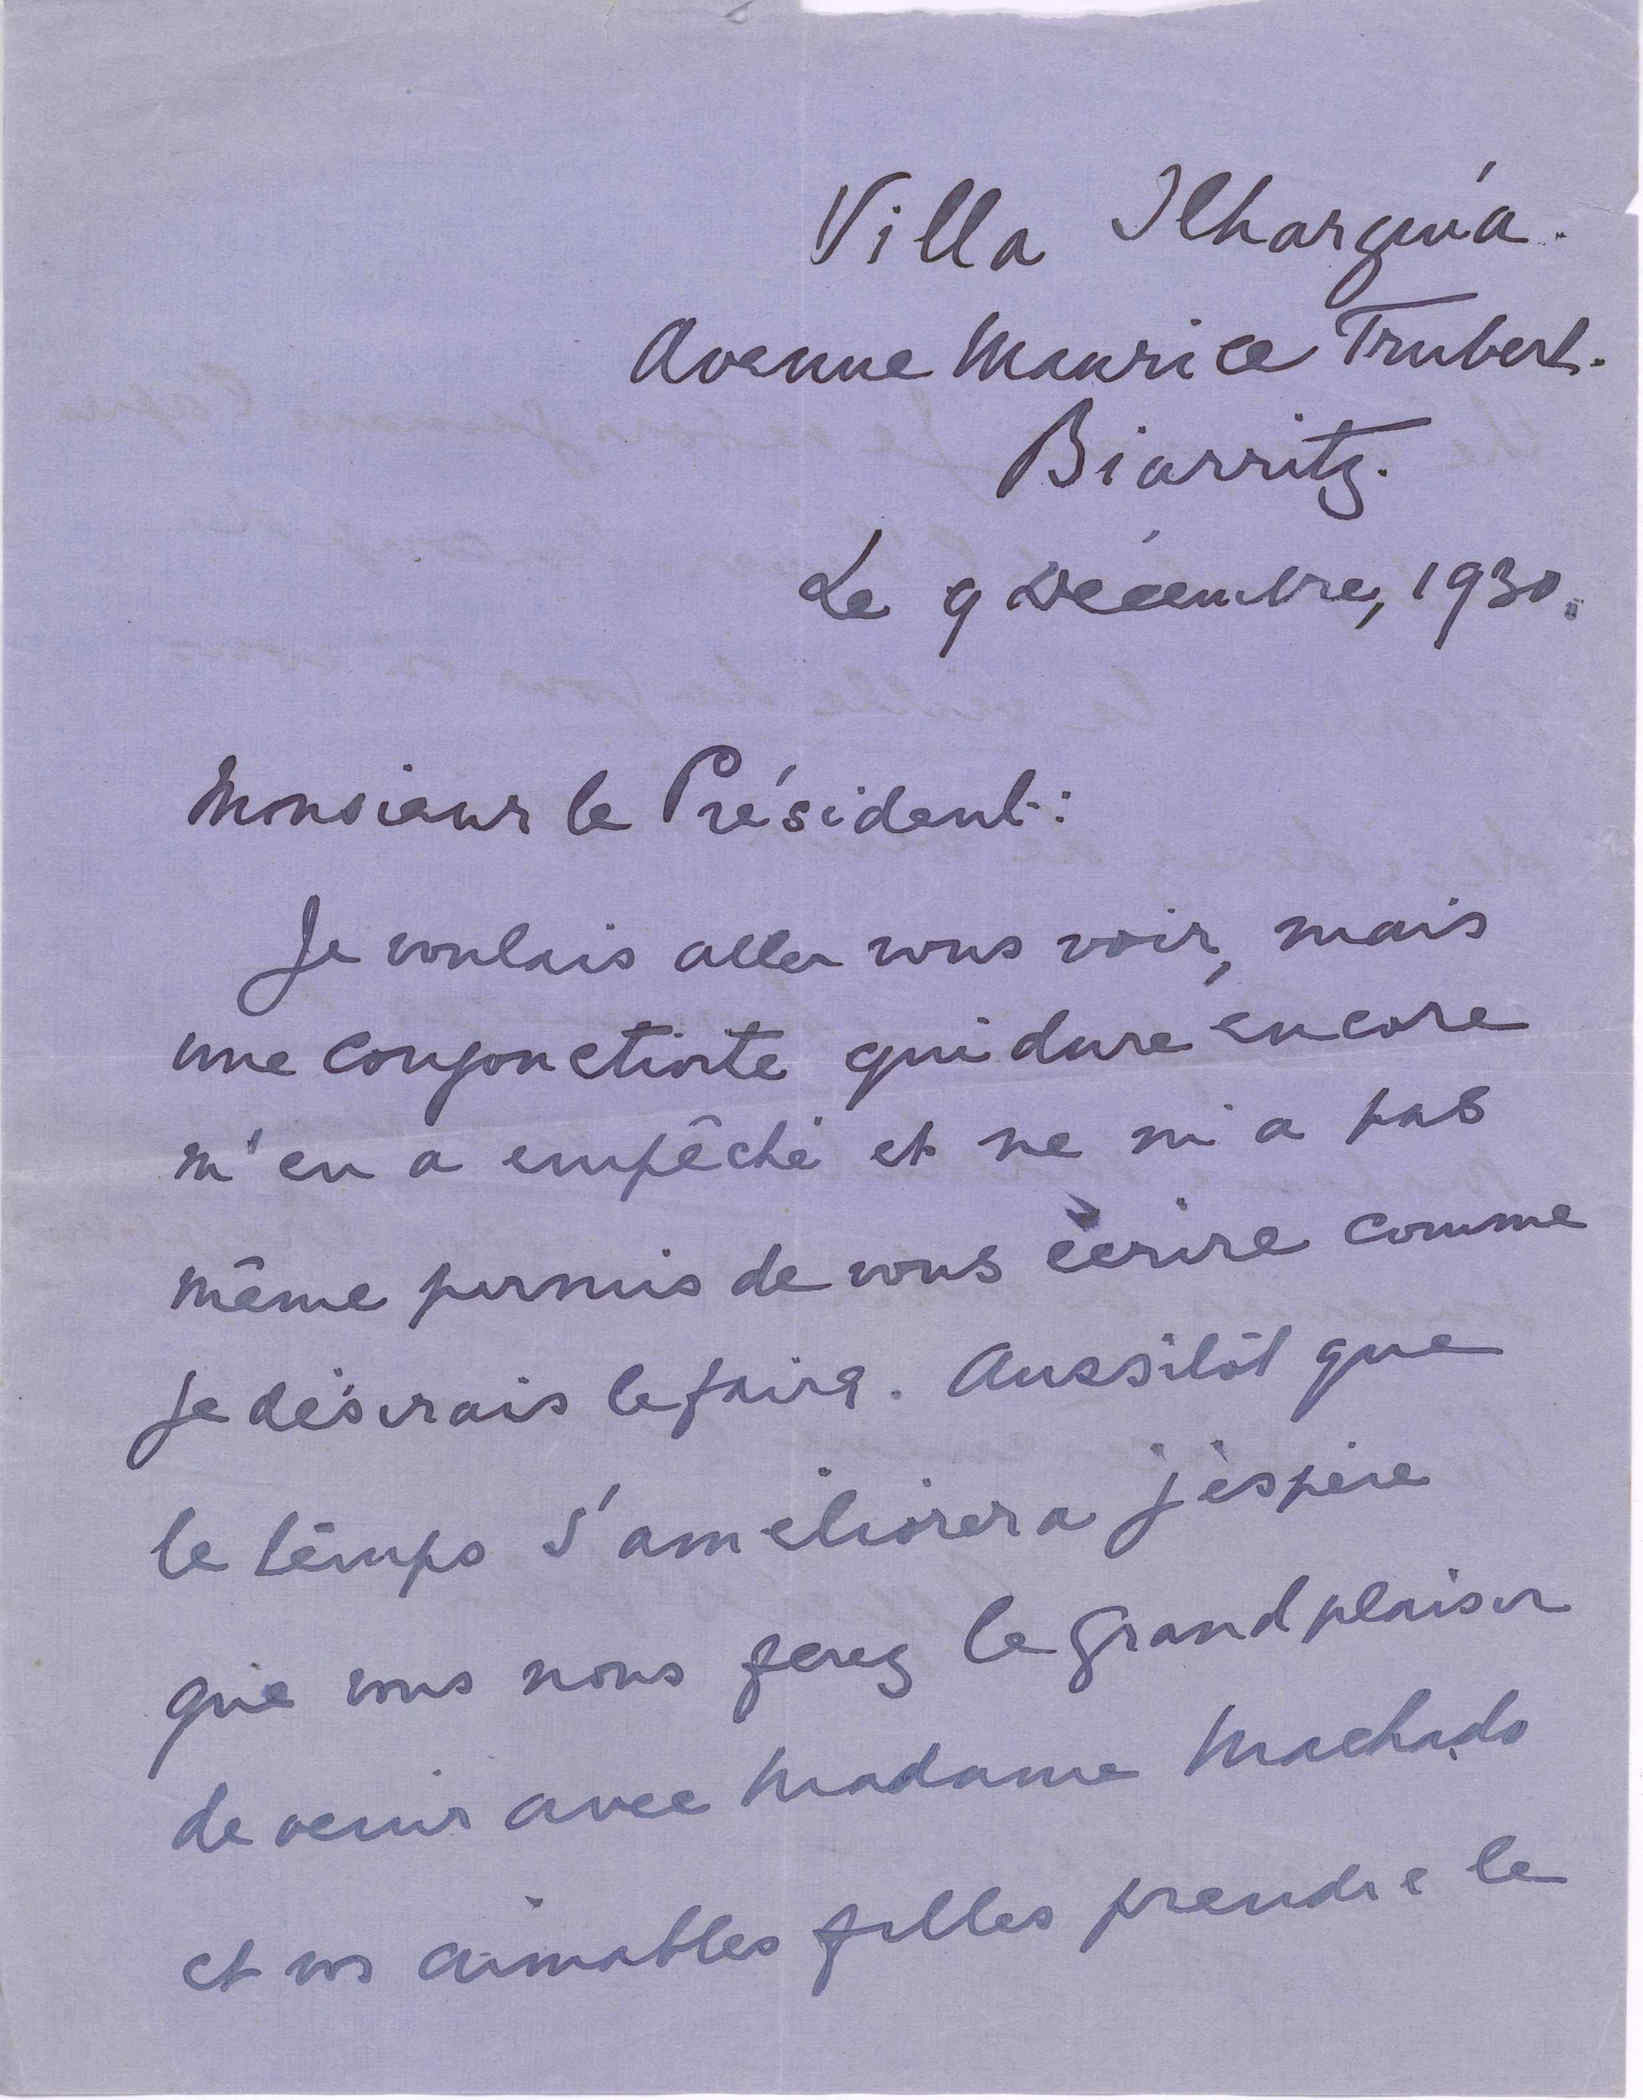 Villa Ilharguía.
Avenue Maurice Trubert.
Biarritz.
Le 9 Décembre, 1930.
Monsieur le Président:
Je voulais aller vous voir, mais
une conjonctivite qui dure encore
m'en a empêché et ne m'a pas
même permis de vous écrire comme
je désirais le faire. Aussitôt que
le temps s'améliorera j'espère
que vous nous ferez le grand plaisir
de venir avec Madame Machado
et vos aimables filles prendre le